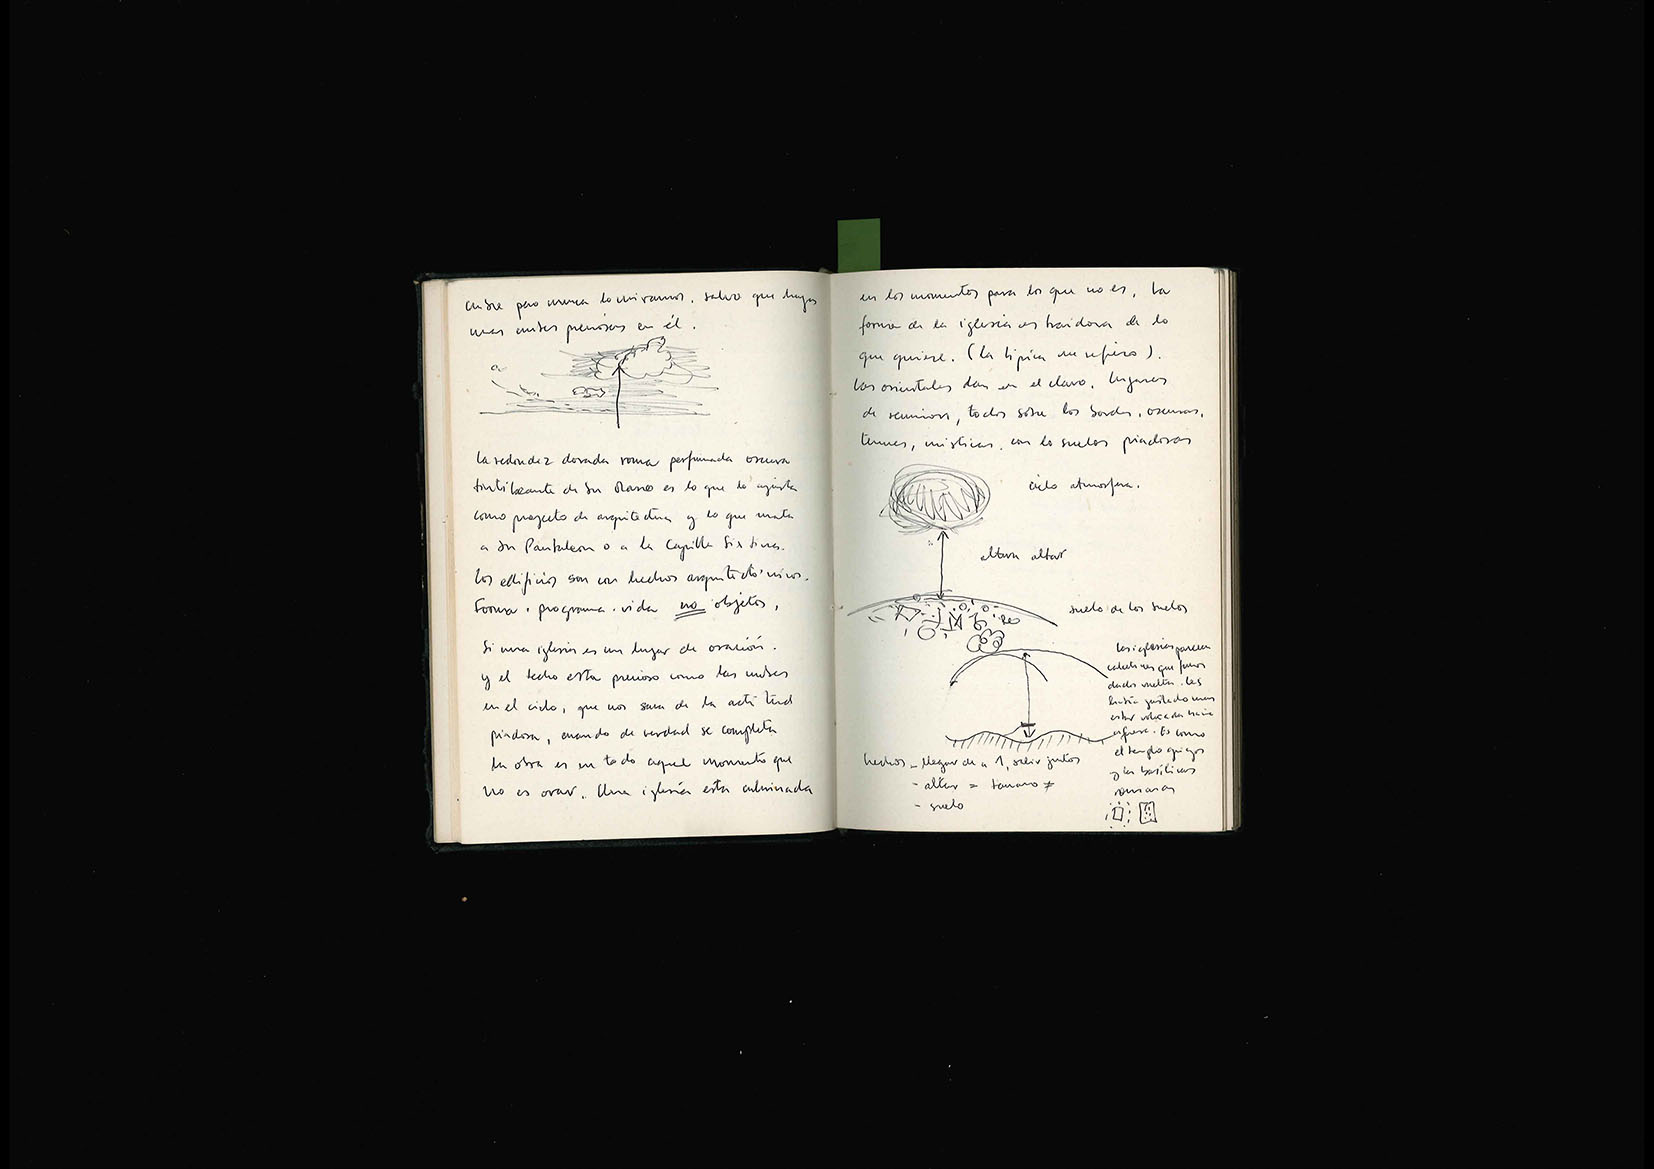 cubre pero nunca lo miramos. salvo que hayas
unas nubes preciosas en él.
la redondez dorada roma perfumada oscura
de San Marco es lo que lo
como proyecto de arquitectura y lo que mata
a San Pantaleon o a la Capilla Sixtina.
Los edificios son con hechos arquitectó
Forma. programa. vida no objetos,
Si una iglesia es un lugar de oración.
y el techo esta precioso como las nubes
en el cielo, que nos saca de la actitud
piadosa, cuando de verdad se completa
la obra es en todo aquel momento que
no es orar. Una iglesia esta culminada
en los momentos para los que no es, la
forma de la iglesia es traidora de lo
que quiere. (la tipica me refiero).
Los orientales dan en el clavo. lugares
de reunion, todos sobre los bordes, oscuras,
tenues, misticas, con lo suelos piadosos
cielo atmosfera.
altura altar
suelo de los suelos
las iglesias parecen
calcetines que fueron
dados vuelta. les
habia gustado mas
estar volcada hacia
afuera. Es como
el templo griego
y las basilicas
romanas
hechos - llegar de a 1, salir juntos
- altar = tamano ≠
- suelo